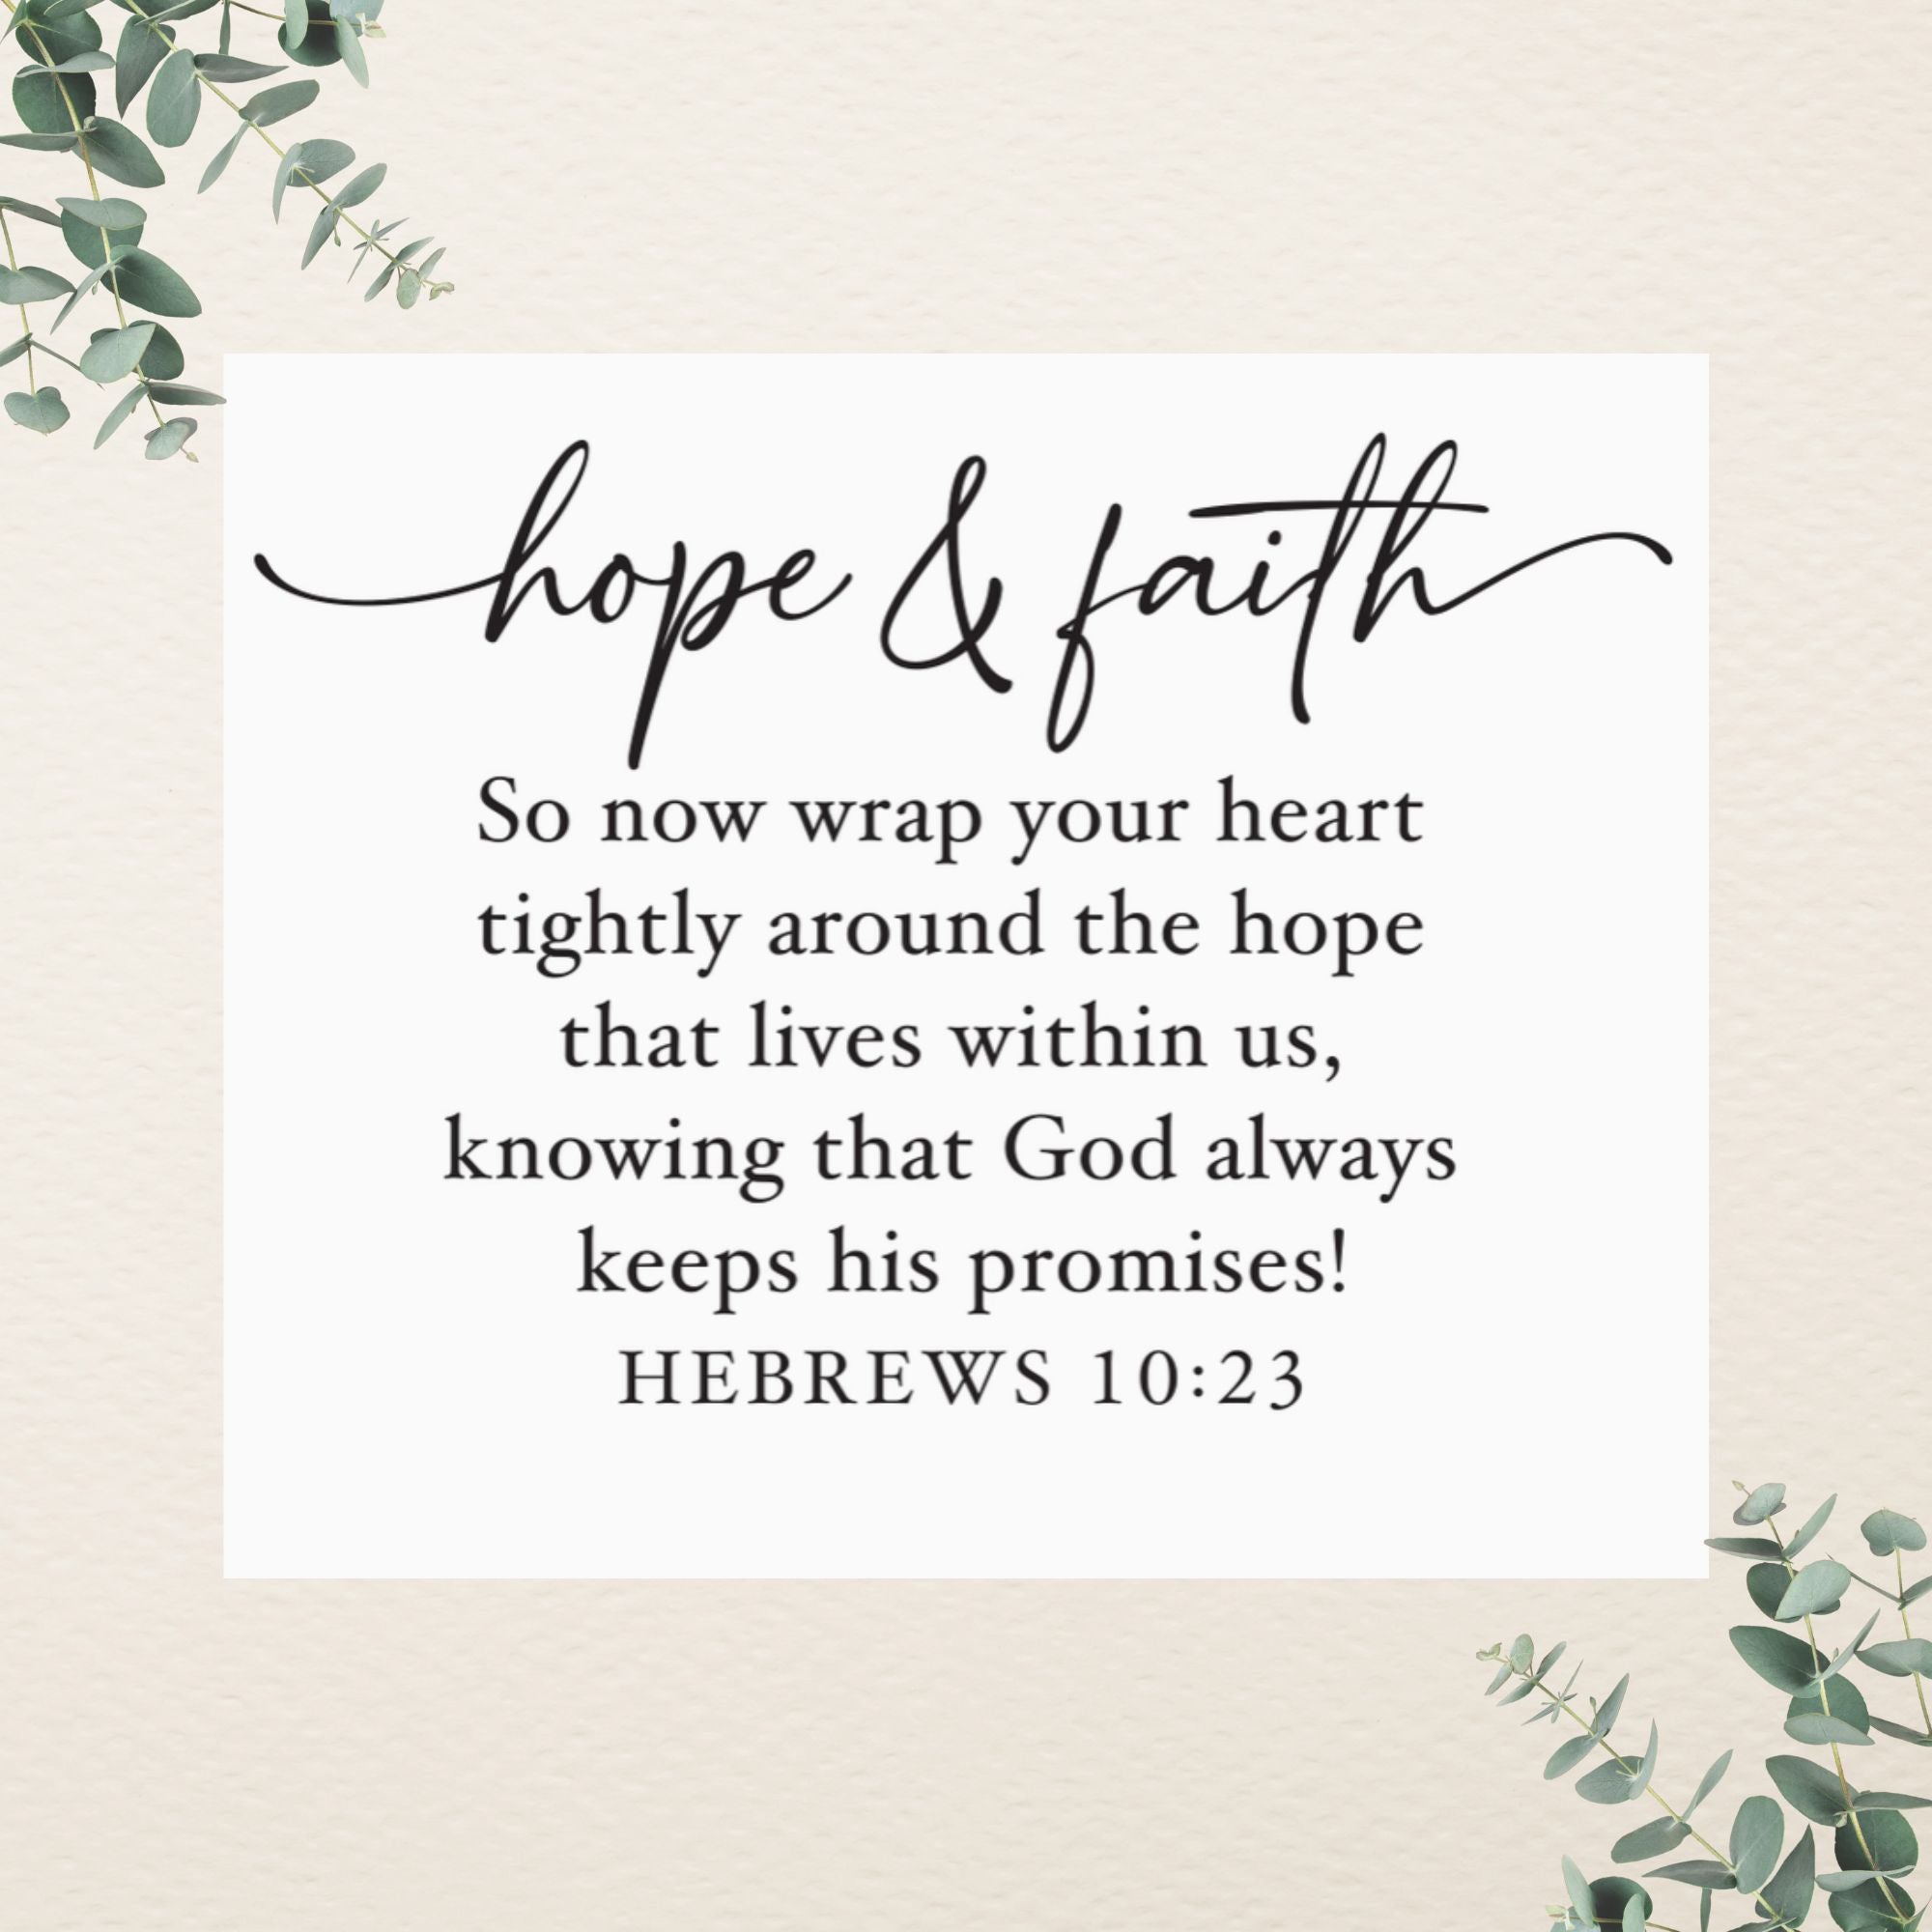 hope & faith
So now wrap your heart
tightly around the hope
that lives within us,
knowing that God always
keeps his promises!
HEBREWS 10:23